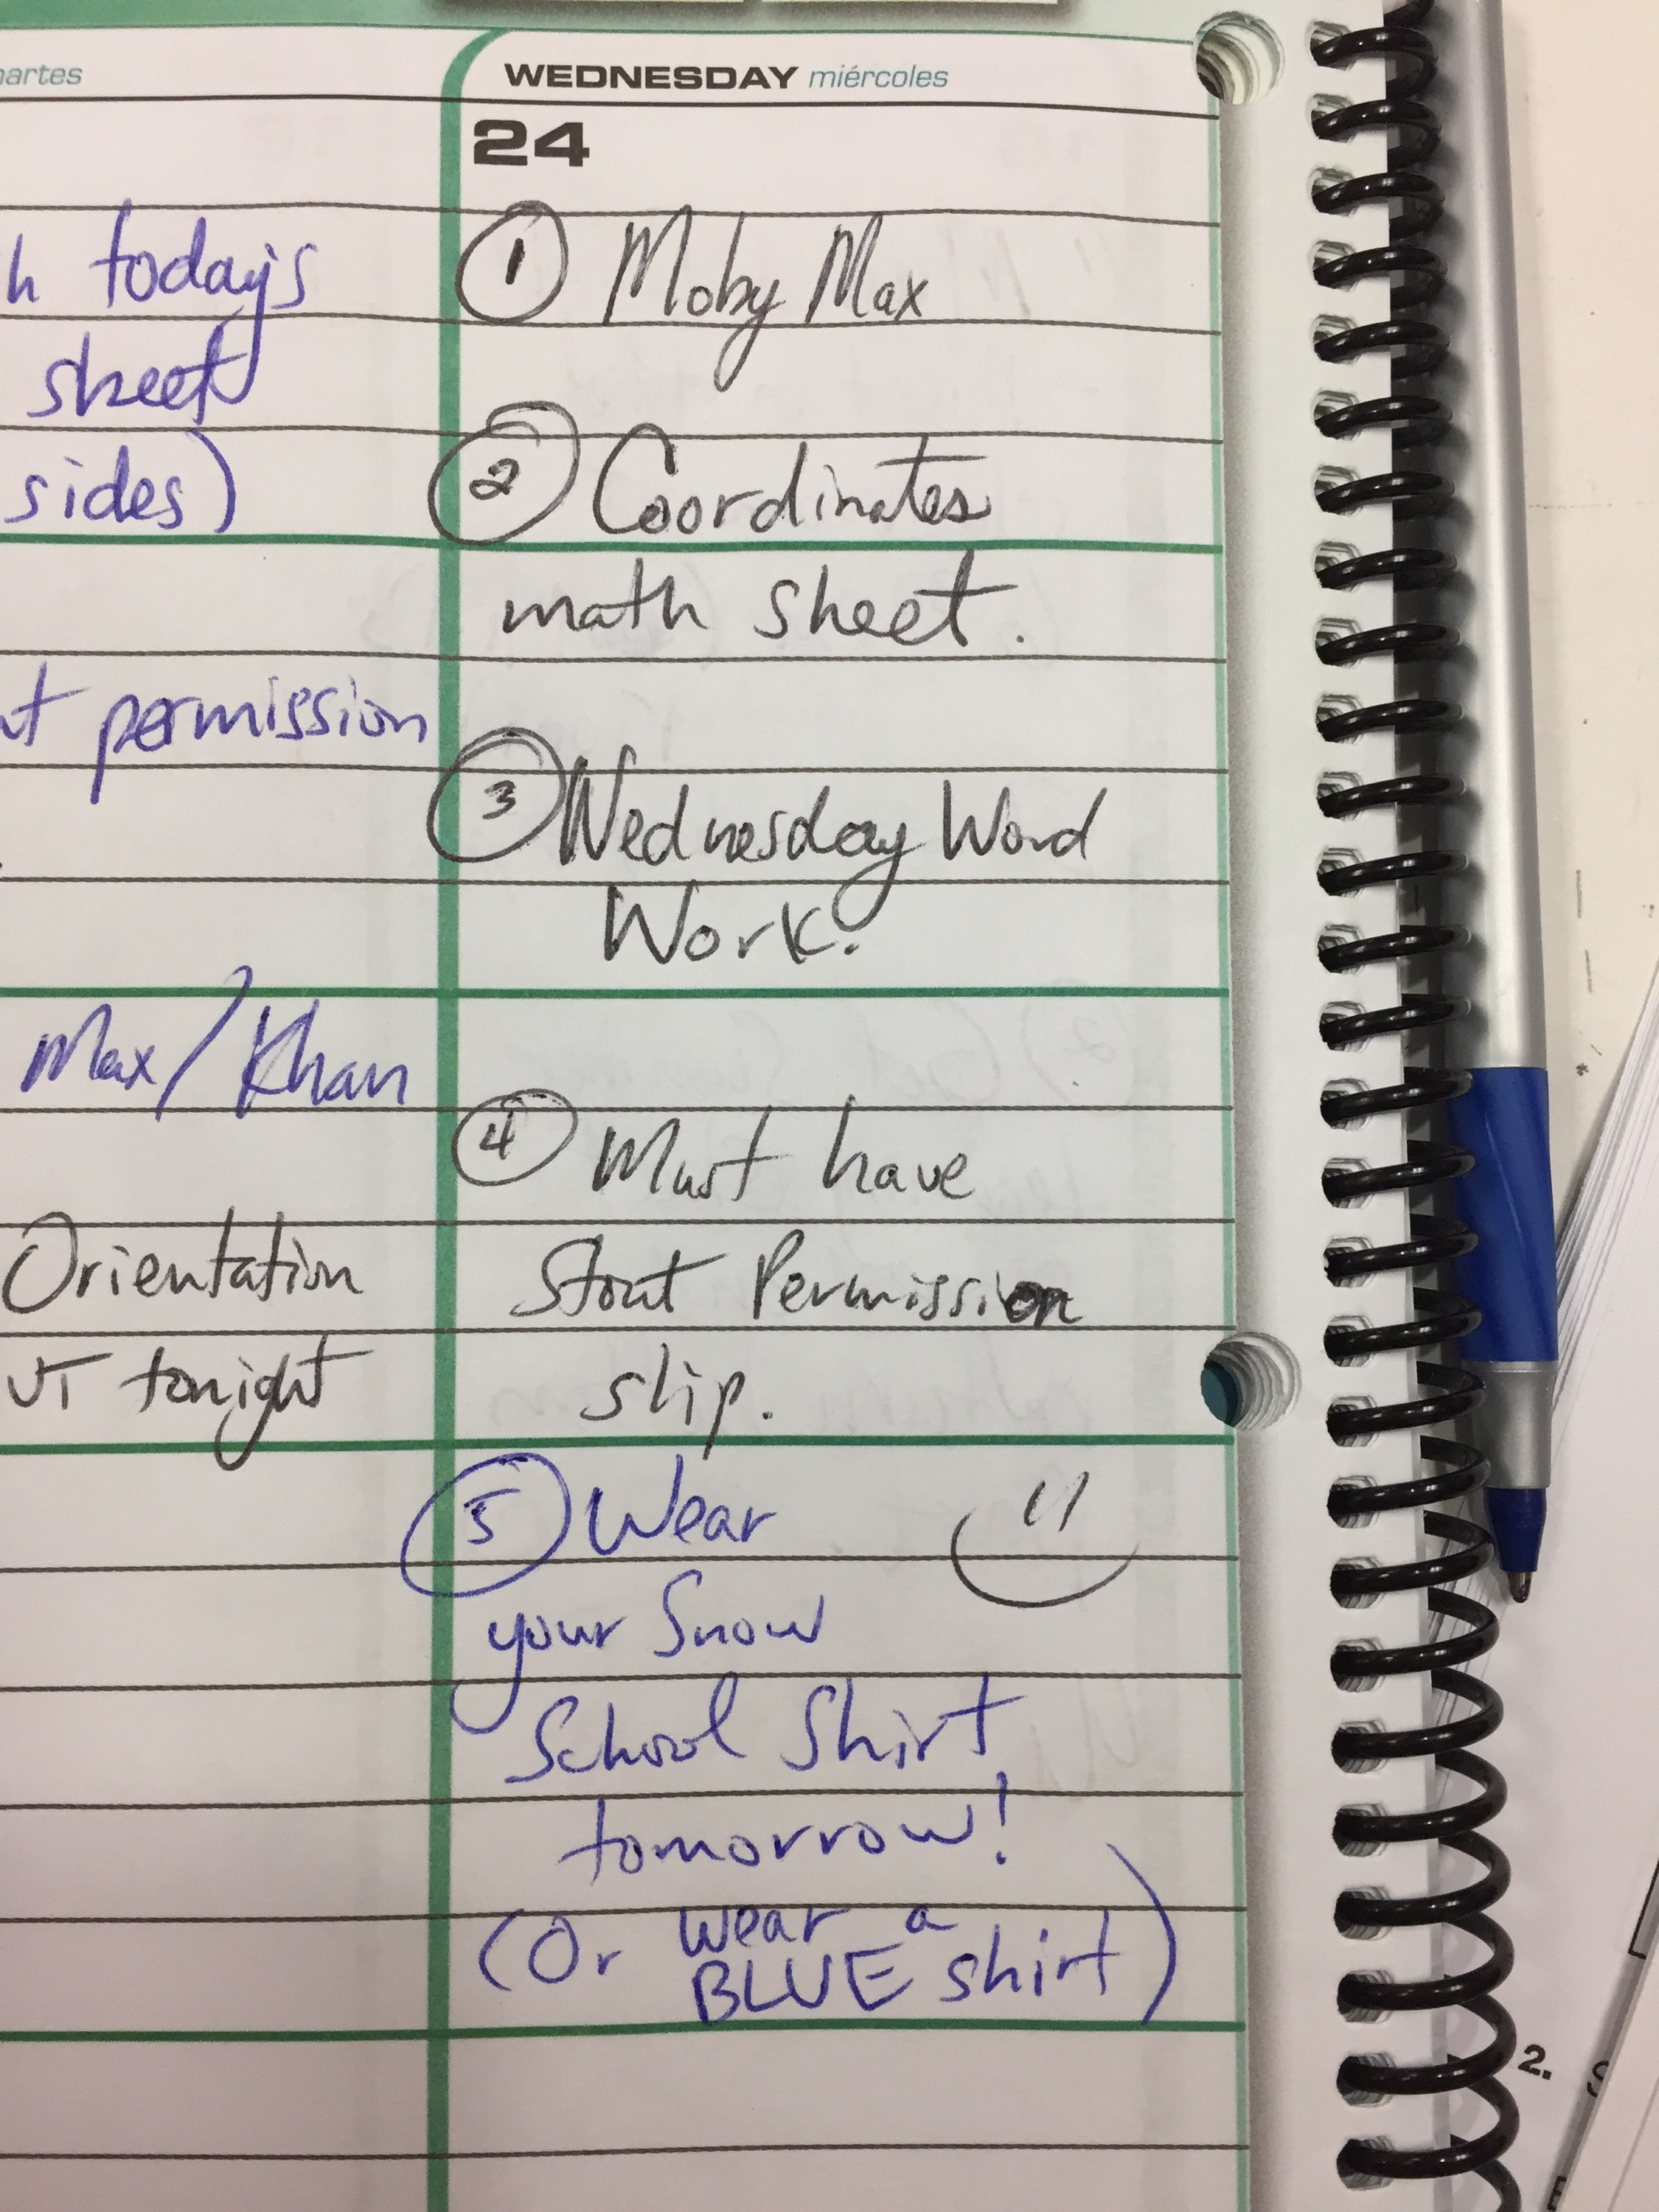 martes
h today's
sheet
sides)
permission
Max/Khan
Orientation
tonight
WEDNESDAY miércoles
24
1 Moby Max
2 Coordinates
math sheet.
3 Wednesday Word
Work.
4 Must have
Stout Permission
slip.
5 Wear
your Snow
School Shirt
tomorrow!
(Or wear a
BLUE shirt)
2.